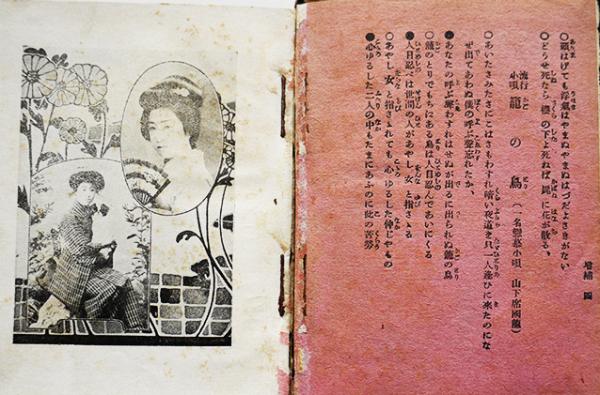 ○頭はげても浮氣はやまぬやまぬはづだよさきがない
○どうせ死ぬなら櫻の下よ死ねば屍に花が散る、
流行
小唄 籠の鳥 (一名戀慕小唄 山下席國龍)
○あいたさみたさにこはさもわすれ暗い夜道を只一人逢ひに來たのにな
ぜ出てあわぬ僕の呼ぶ聲忘れたか、
●あなたの呼ぶ聲わすれはせぬが出るに出られぬ籠の鳥
○籠のとりでもちゑある鳥は人目忍んであいにくる
●人目忍べば世間の人があやし女と指さゝる
○あやし女と指さされても心ゆるした仲じやもの
●心ゆるした二人の中もたまにあふのに此の苦勞
增補 四